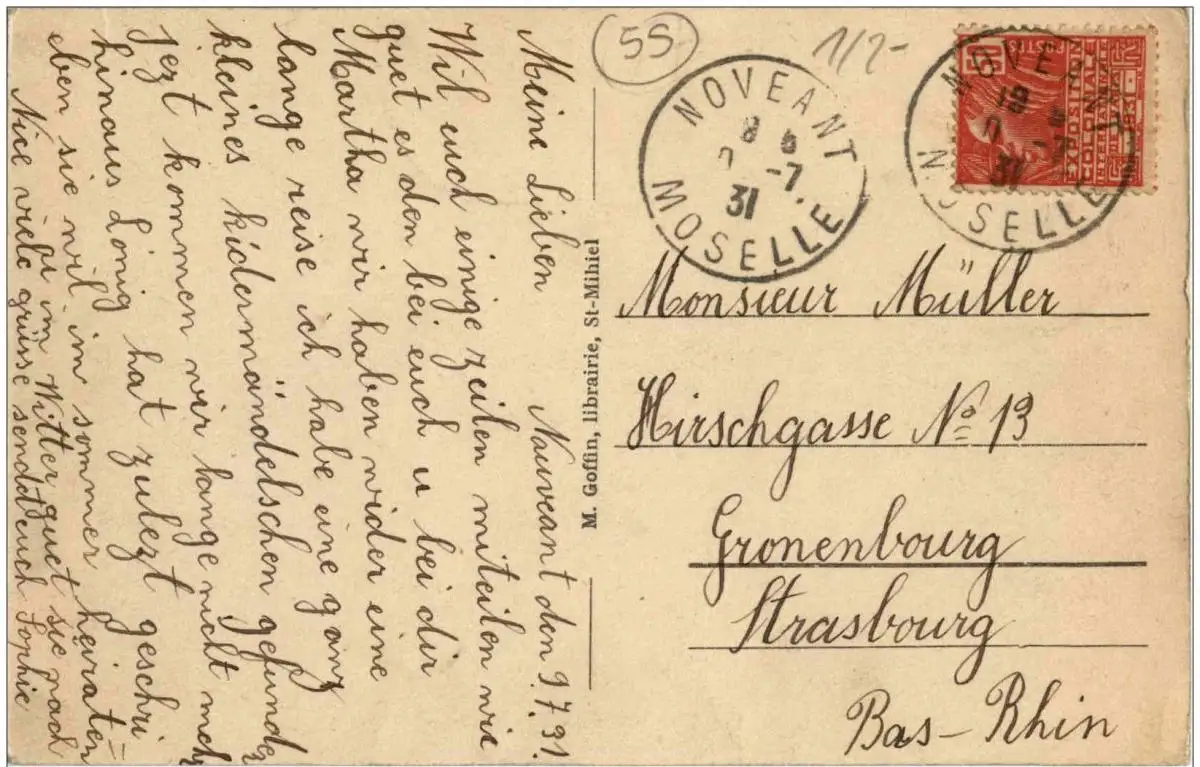 Meine Lieben Nauveant den 9.7.31.
Wil euch einige zeilen miteilen wie
guet es den bei euch u bei dir
Martha wir haben wider eine
lange reise ich habe eine ganz
kleines kidermändelschen gefunden
jezt kommen wir lange nicht mehr
hinaus Lönig hat zulezt geschri
ben sie wil im sommer heiraten
in Witter guet sie nach
Nice viele grüsse sendet euch Sophie
M. Goffin, librairie, St-Mihiel
55
1/2-
NOVEANT
31
MOSELLE
NOVEANT
18
31
MOSELLE
POSTES
EXPOSITION
COLONIALE
INTERNATIONALE
1931
Monsieur Müller
Hirschgasse No 13
Gronenbourg
Strasbourg
Bas-Rhin